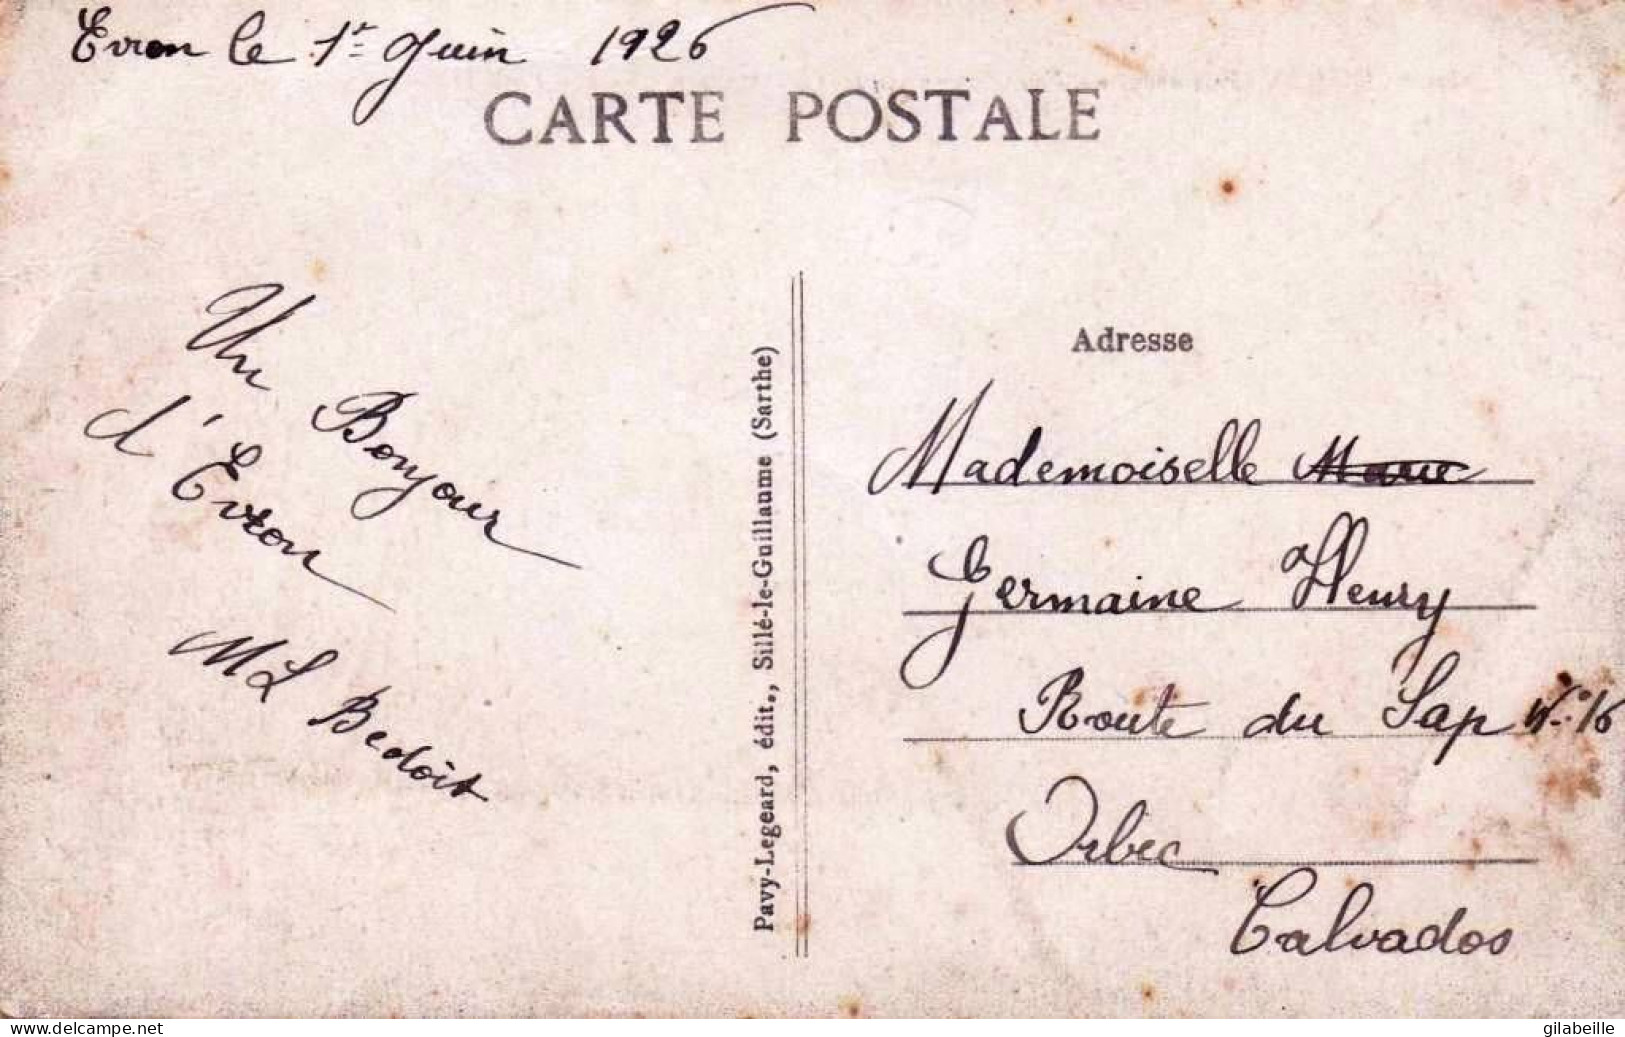 Evron le 1er Juin 1926
CARTE POSTALE
Un Bonjour
d'Evron
ML Bedoit
Pavy-Legeard, édit., Sillé-le-Guillaume (Sarthe)
Adresse
Mademoiselle Marie
Germaine Henry
Route du Sap N° 16
Orbec
Calvados
www.delcampe.net
gilabeille